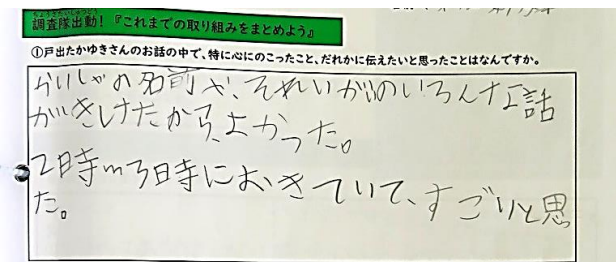 調査隊出動！『これまでの取り組みをまとめよう』
①戸出たかゆきさんのお話の中で、特に心にのこったこと、だれかに伝えたいと思ったことはなんですか。
かいしゃの名前や、それいがいのいろんな話
がきけたから、よかった。
2時〜3時におきていて、すごいと思
た。